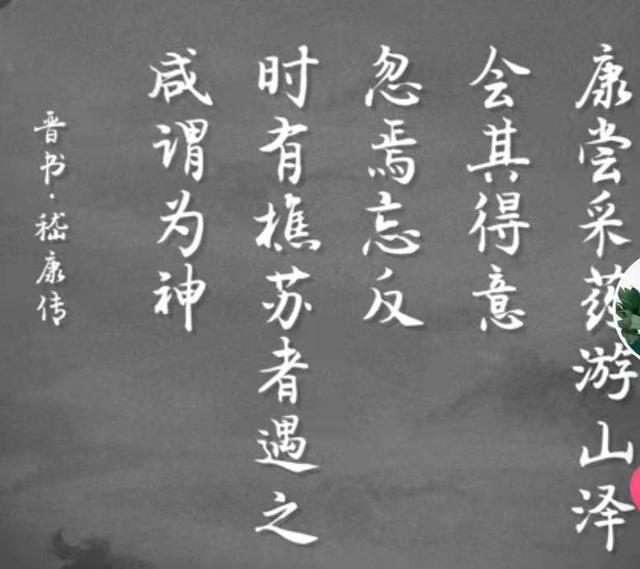 康尝采药游山泽
会其得意
忽焉忘反
时有樵苏者遇之
咸谓为神
晋书·嵇康传